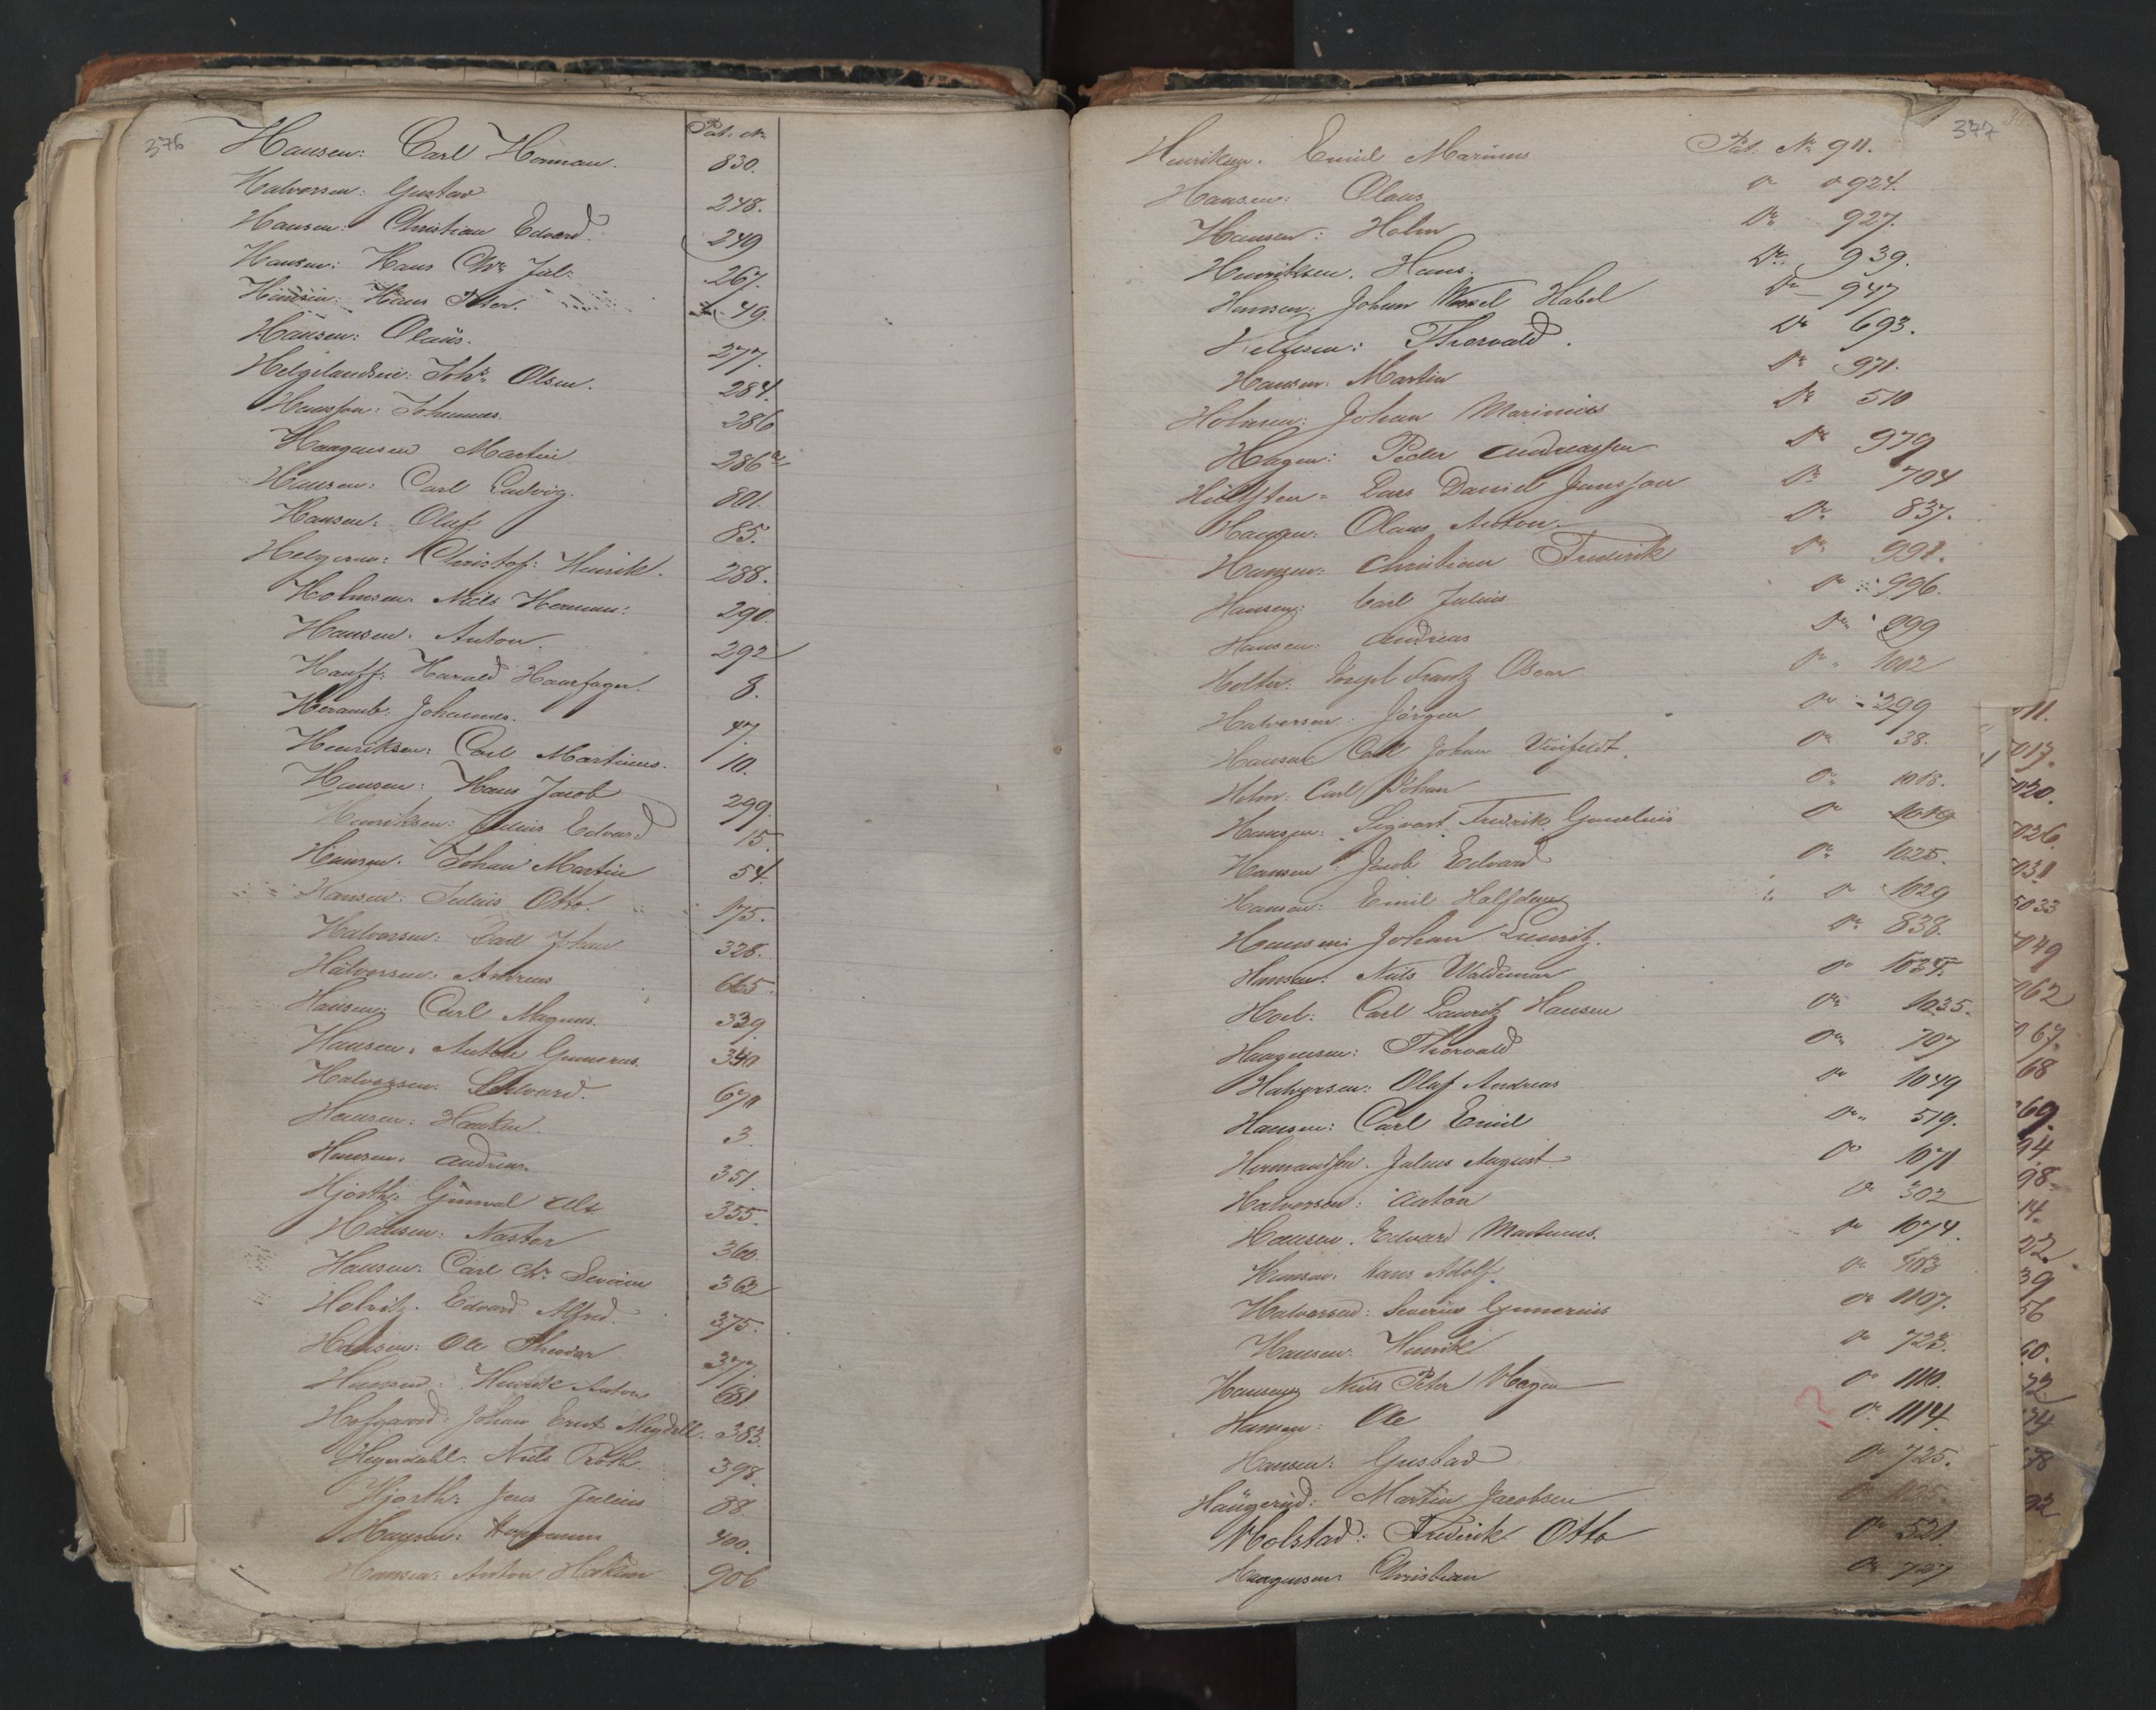 376
Pat. No
Hansen: Carl Herman. 830.
Halvorsen: Gustav 248.
Hansen: Christian Edvard. 249
Hansen: Hans Chr. Jul: 267.
Hansen: Hans Peter. 49.
Hansen: Olaus. 277.
Helgelandsen: Johs. Olsen. 284.
Hansson: Johannes. 286
Haagensen Martin 286 a/
Hansen: Carl Ludvig. 801.
Hansen: Oluf. 85.
Helgesen: Christof: Henrik. 288.
Holmsen. Niels Herman: 290.
Hansen. Anton. 292
Hauff: Harald Haarfager. 8.
Heramb: Johannes. 47.
Henriksen: Carl Martinus. 10.
Hansen: Hans Jacob 299.
Henriksen: Julius Edvard 15.
Hansen. Johan Martin 54.
Hansen: Julius Otto. 175.
Halvorsen: Carl Johan 328.
Halvorsen: Andreas 665.
Hansen: Carl Magnus. 339.
Hansen. Anton Gunerus. 340
Halvorsen. Edvard. 670
Hansen: Haaken. 3.
Hansen: Andreas. 351.
Hjorth: Gunval 355.
Hansen: 360.
Hansen: Carl Chr. Severin 362
Edvard Alfred. 375.
Hansen: Ole Theodor 377.
Hansen: Henrik Anton 681.
Hofgaard: Johan Ernst Meydell. 383.
Heyerdahl. Niels Roth. 398.
Hjorth: Jens Julius 88.
Hansen: Hermann 400.
Hansen: Anton Haakon 906
377
Henriksen. Emil Marinus Pat. No 911.
Hansen: Olaus Do 924.
Hansen: Holm Do 927.
Henriksen. Hans. Do 939.
Hansen: Johan Wessel Habel Do 947
Thorvald. Do 693.
Hansen: Martin Do 971.
Holmsen: Johan Marinius Do 510
Hagen: Peder Andreassen Do 979
Lars Daniel Jonsson Do 704
Olaus Anton. Do 837.
Hansen: Christian Frederik Do 991.
Hansen: Carl Julius Do 996.
Hansen: Andreas Do 999
Holter: Joseph Frantz Oscar Do 1002
Halvorsen: Jörgen Do 299
Hansen Carl Johan Vinfeldt. Do 38.
Holm: Carl Johan Do 1018.
Hansen: Sigvart Fredrik Do 1019
Hansen Jacob Edvard Do 1025.
Hansen: Emil Halfdan Do 1029
Hansen: Johan Lauritz. Do 838.
Hansen: Niels Waldemar Do 1034.
Hoel: Carl Lauritz Hansen Do 1035.
Haagensen: Thorvald Do 707
Halvorsen: Oluf Andreas Do 1049
Hansen: Carl Emil Do 519.
Hermandsen. Julius August Do 1071
Halvorsen: Anton Do 302
Hansen. Edvard Martinius. Do 1074.
Hansen. Hans Adolf. Do
Halvorsen: Severius Gunerius Do 1107.
Hansen. Henrik Do 722.
Hansen. Niels Peter Hagen Do 1110.
Hansen: Ole Do 1114.
Hansen: Gustav Do 725.
Haugerud: Martin Jacobsen
Holstad: Frederik Otto Do 521.
Haagensen: Christian Do 727